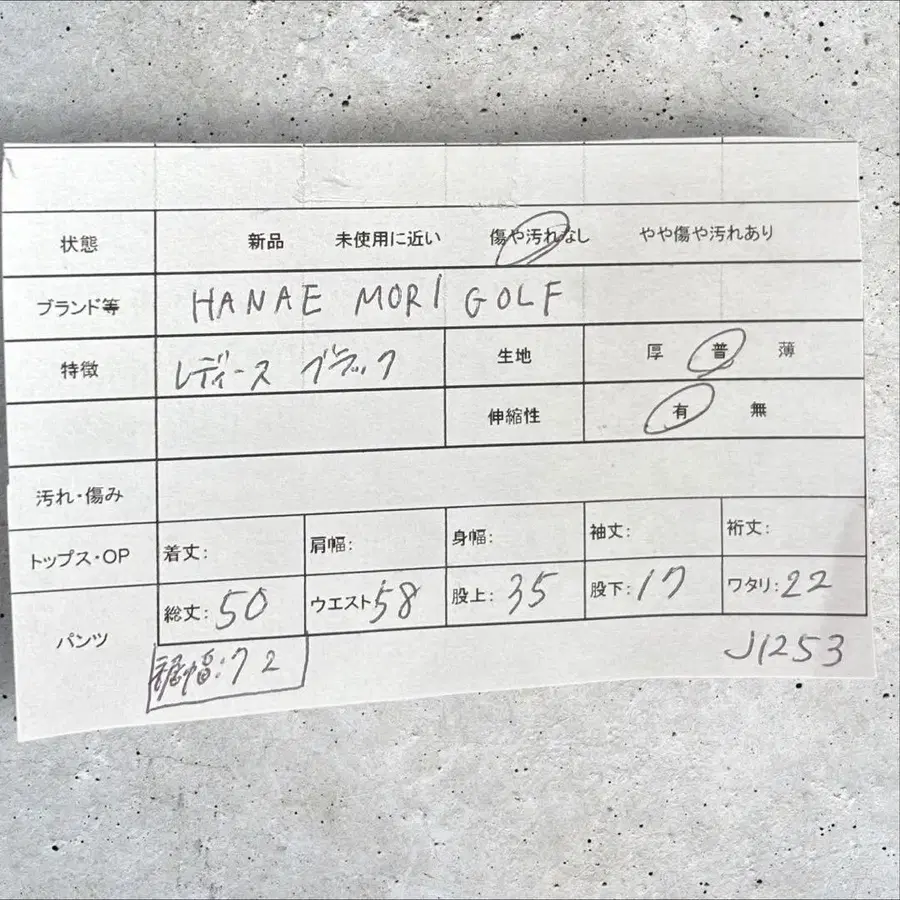 状態 新品 未使用に近い 傷や汚れなし やや傷や汚れあり
ブランド等 HANAE MORI GOLF
特徴 レディース ブラック 生地 厚 普 薄
伸縮性 有 無
汚れ・傷み
トップス・OP 着丈: 肩幅: 身幅: 袖丈: 裄丈:
パンツ 総丈: 50 ウエスト 58 股上: 35 股下: 17 ワタリ: 22
裾幅: 72 J1253